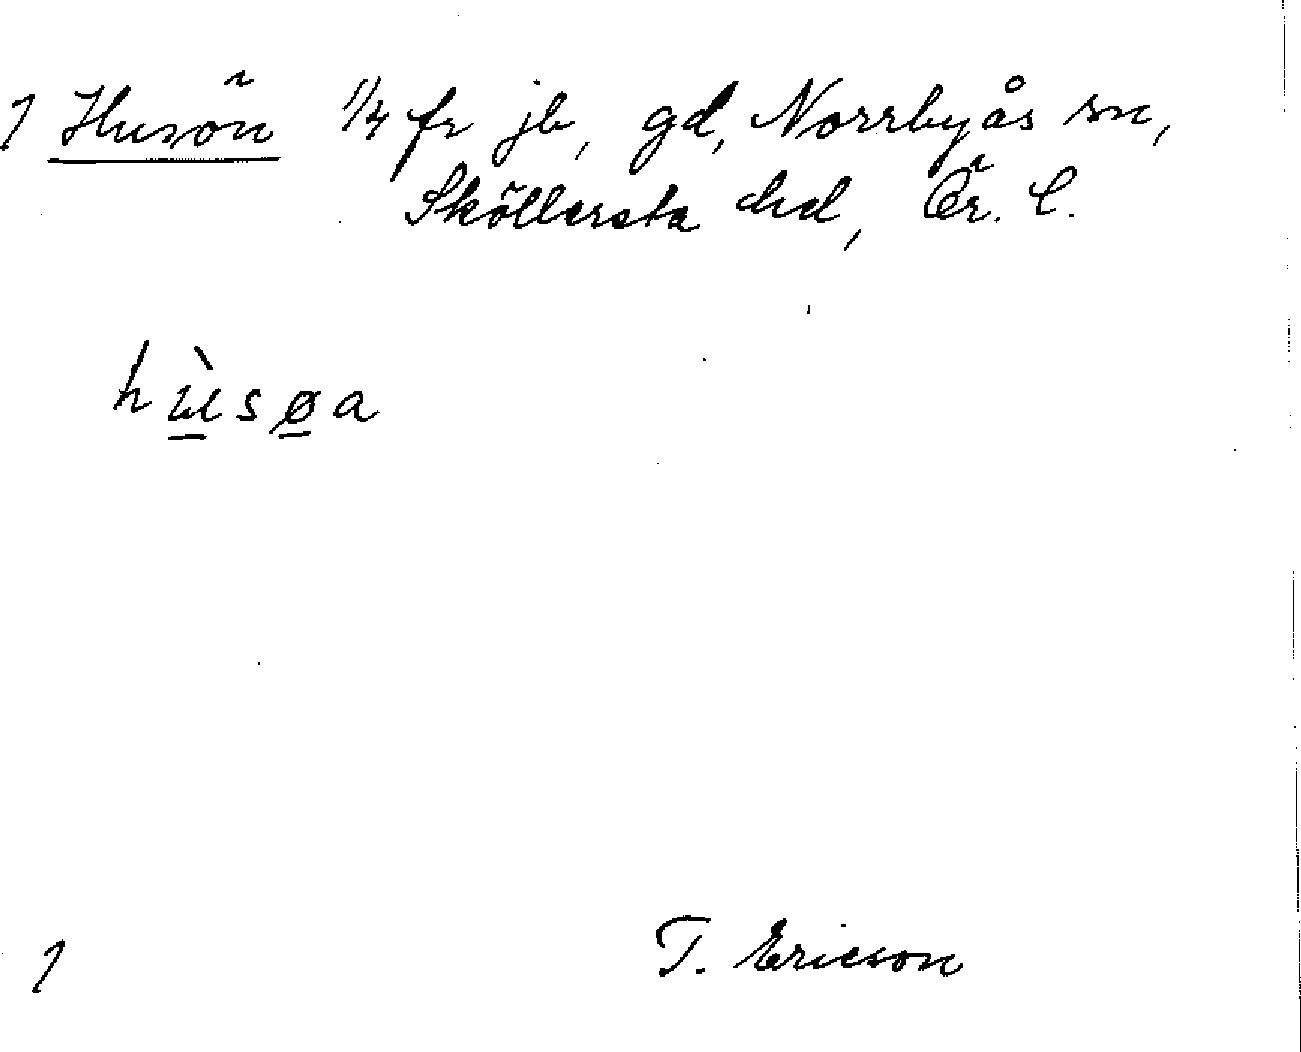 1 Husön 1/4 fr jb, gd, Norrbyås sn,
Sköllersta hd, Ör. l.
hùsøa
1 T. Ericson